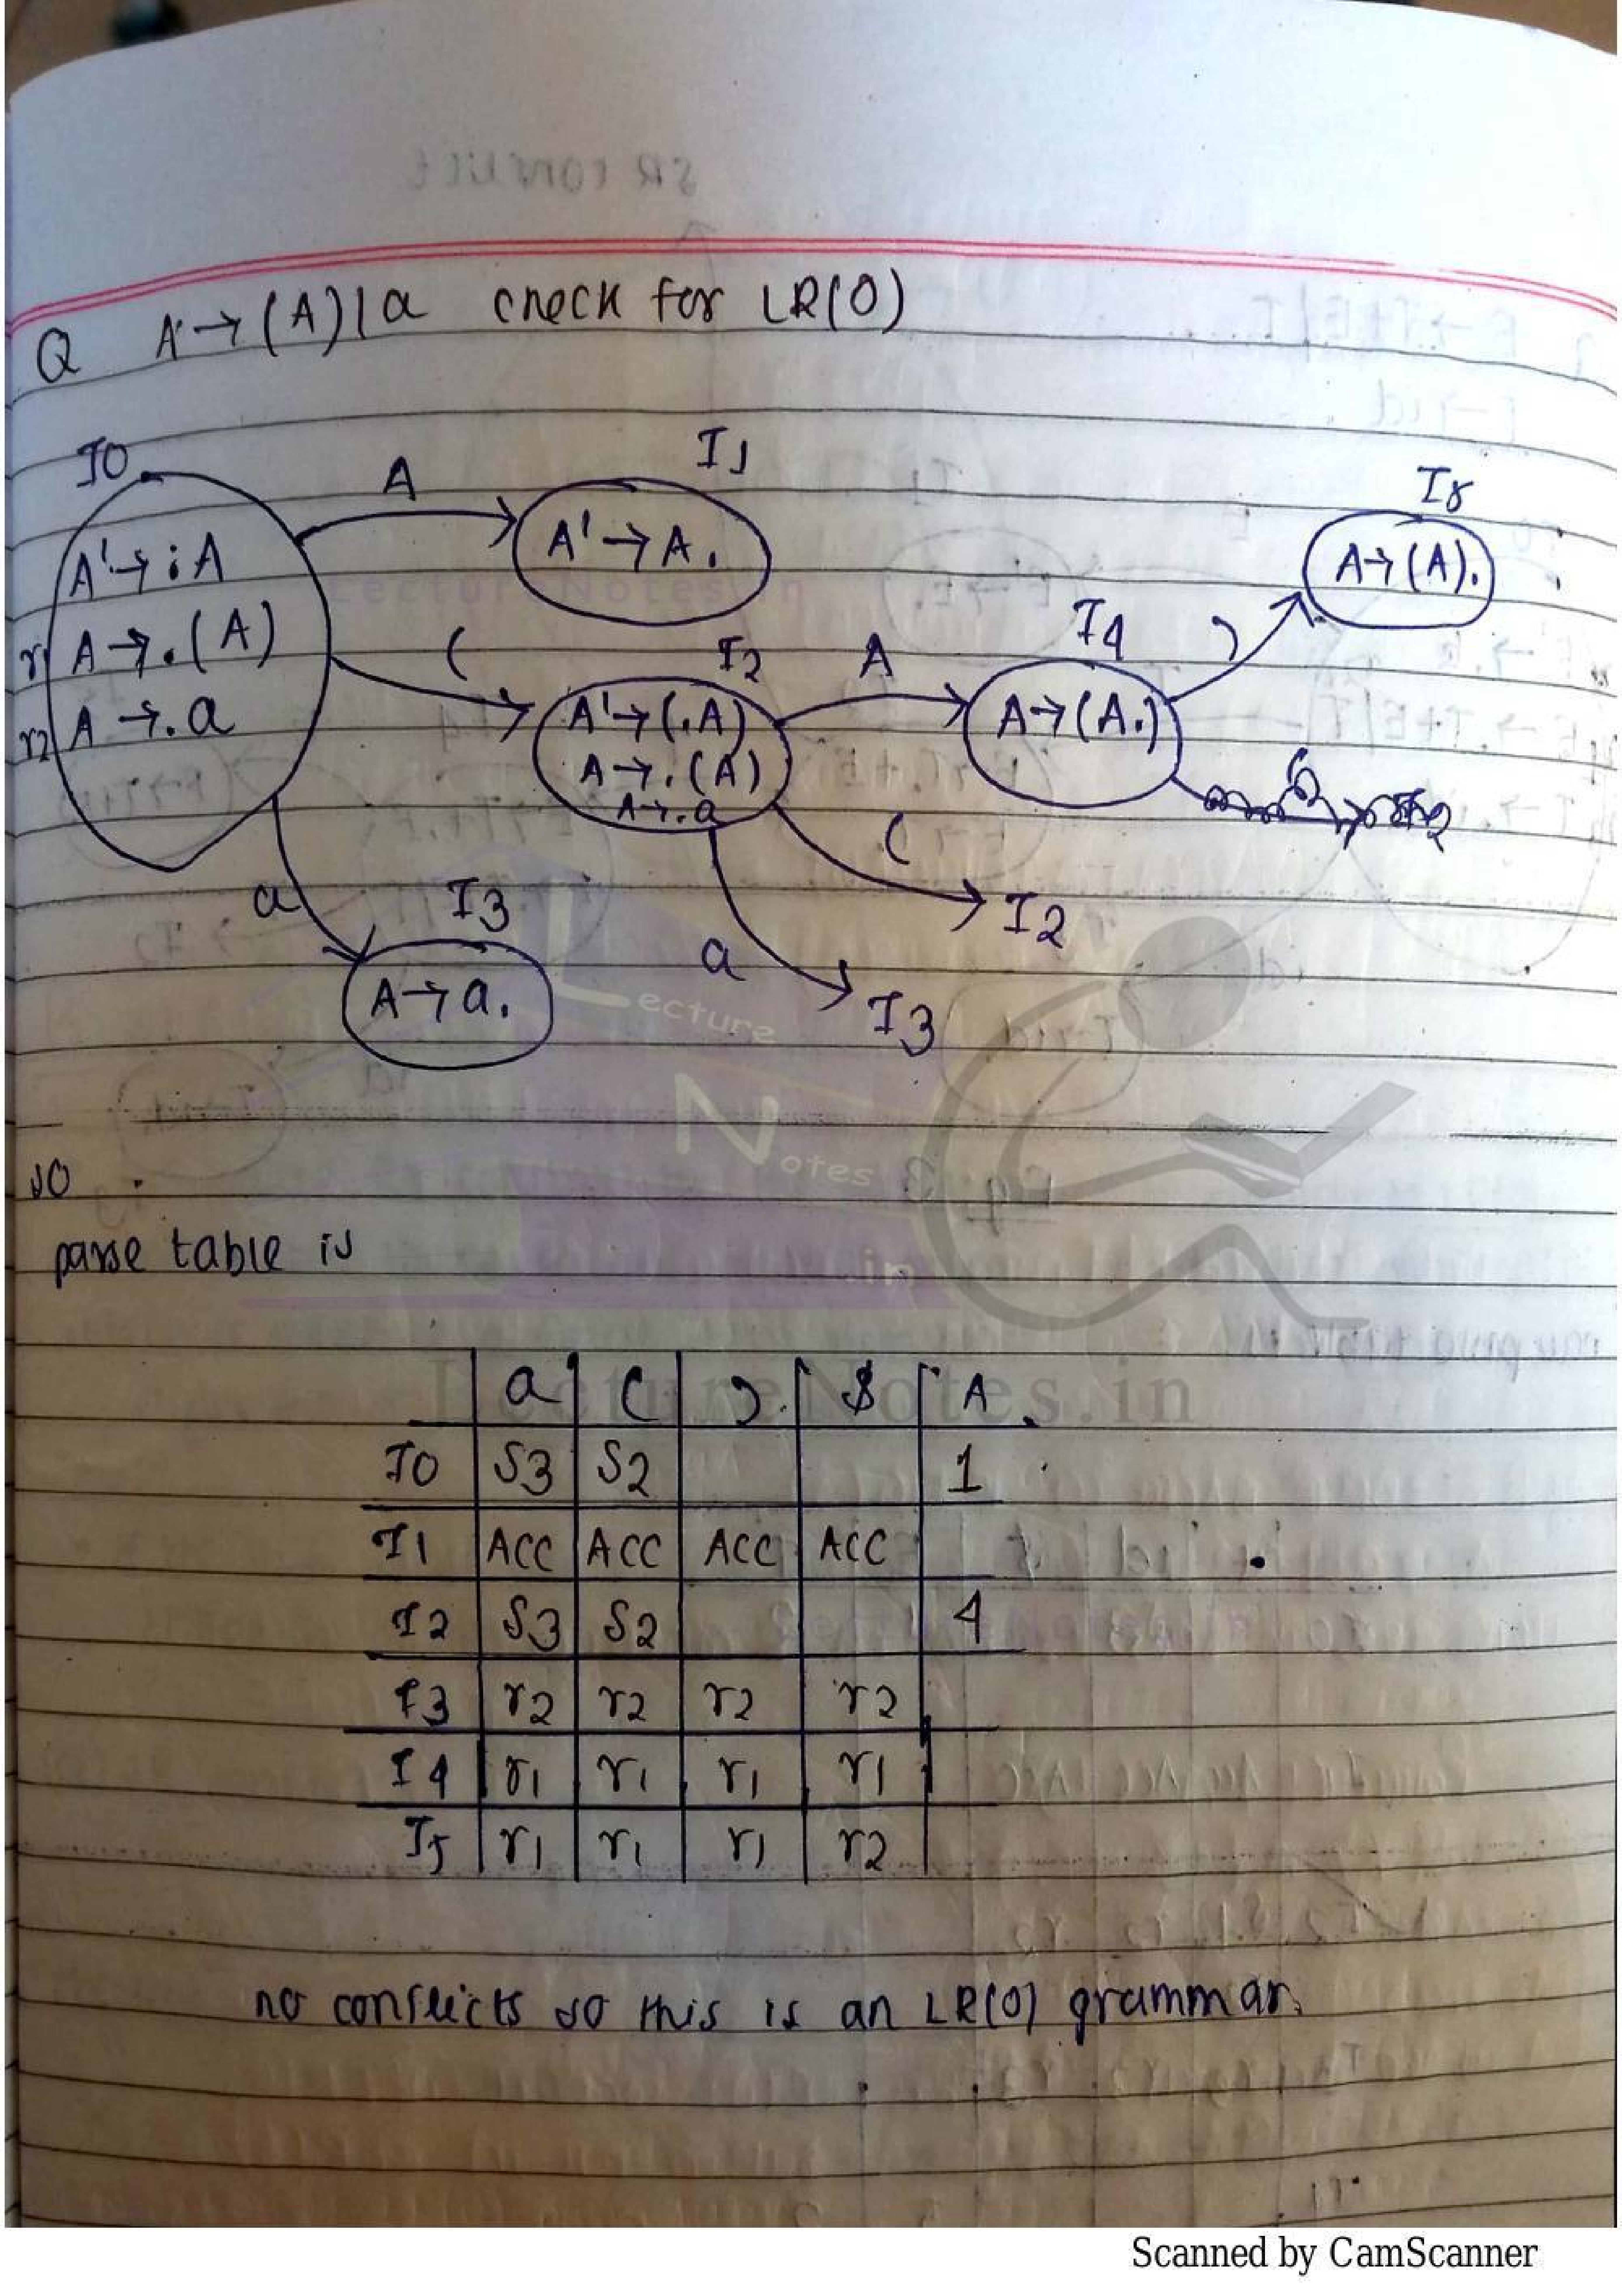 Q A → (A) | a check for LR(0)
I0
A' → .A
r1 A → .(A)
r2 A → .a
A
I1
A' → A.
(
I2
A' → (.A)
A → .(A)
A → .a
A
I4
A → (A.)
)
I5
A → (A).
(
I2
a
I3
a
I3
A → a.
Lecture Notes.in
so
parse table is
LectureNotes.in
a ( ) $ A
I0 S3 S2 1
I1 ACC ACC ACC ACC
I2 S3 S2 4
I3 r2 r2 r2 r2
I4 r1 r1 r1 r1
I5 r1 r1 r1 r2
no conflicts so this is an LR(0) grammar.
Scanned by CamScanner